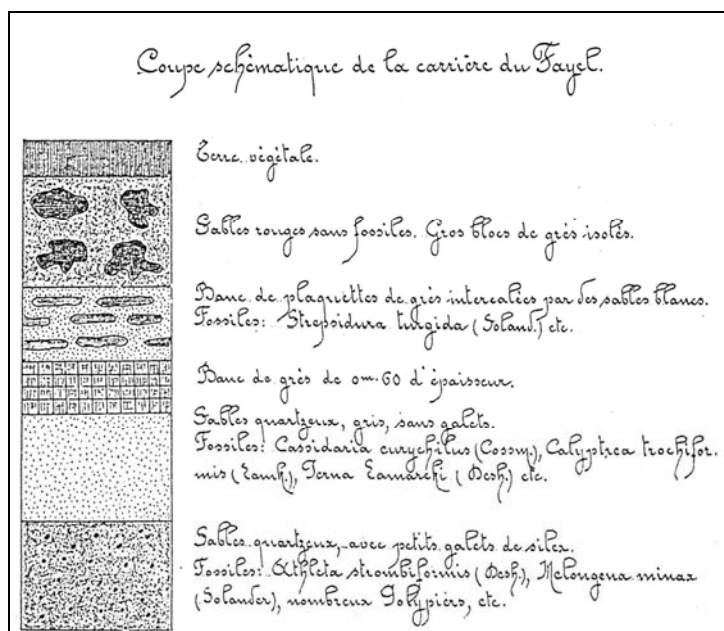 Coupe schématique de la carrière du Fayel.
Terre végétale.
Sables rouges sans fossiles. Gros blocs de grès isolés.
Banc de plaquettes de grès intercalées par des sables blancs.
Fossiles: Strepsidura turgida (Soland.) etc.
Banc de grès de 0m.60 d'épaisseur.
Sables quartzeux, gris, sans galets.
Fossiles: Cassidaria eurychilus (Cossm.), Calyptrea trochifor-
mis (Lamk.), Perna Lamarcki (Desh.) etc.
Sables quartzeux, avec petits galets de silex.
Fossiles: Athleta strombiformis (Desh.), Melongena minax
(Solander), nombreux Polypiers, etc.